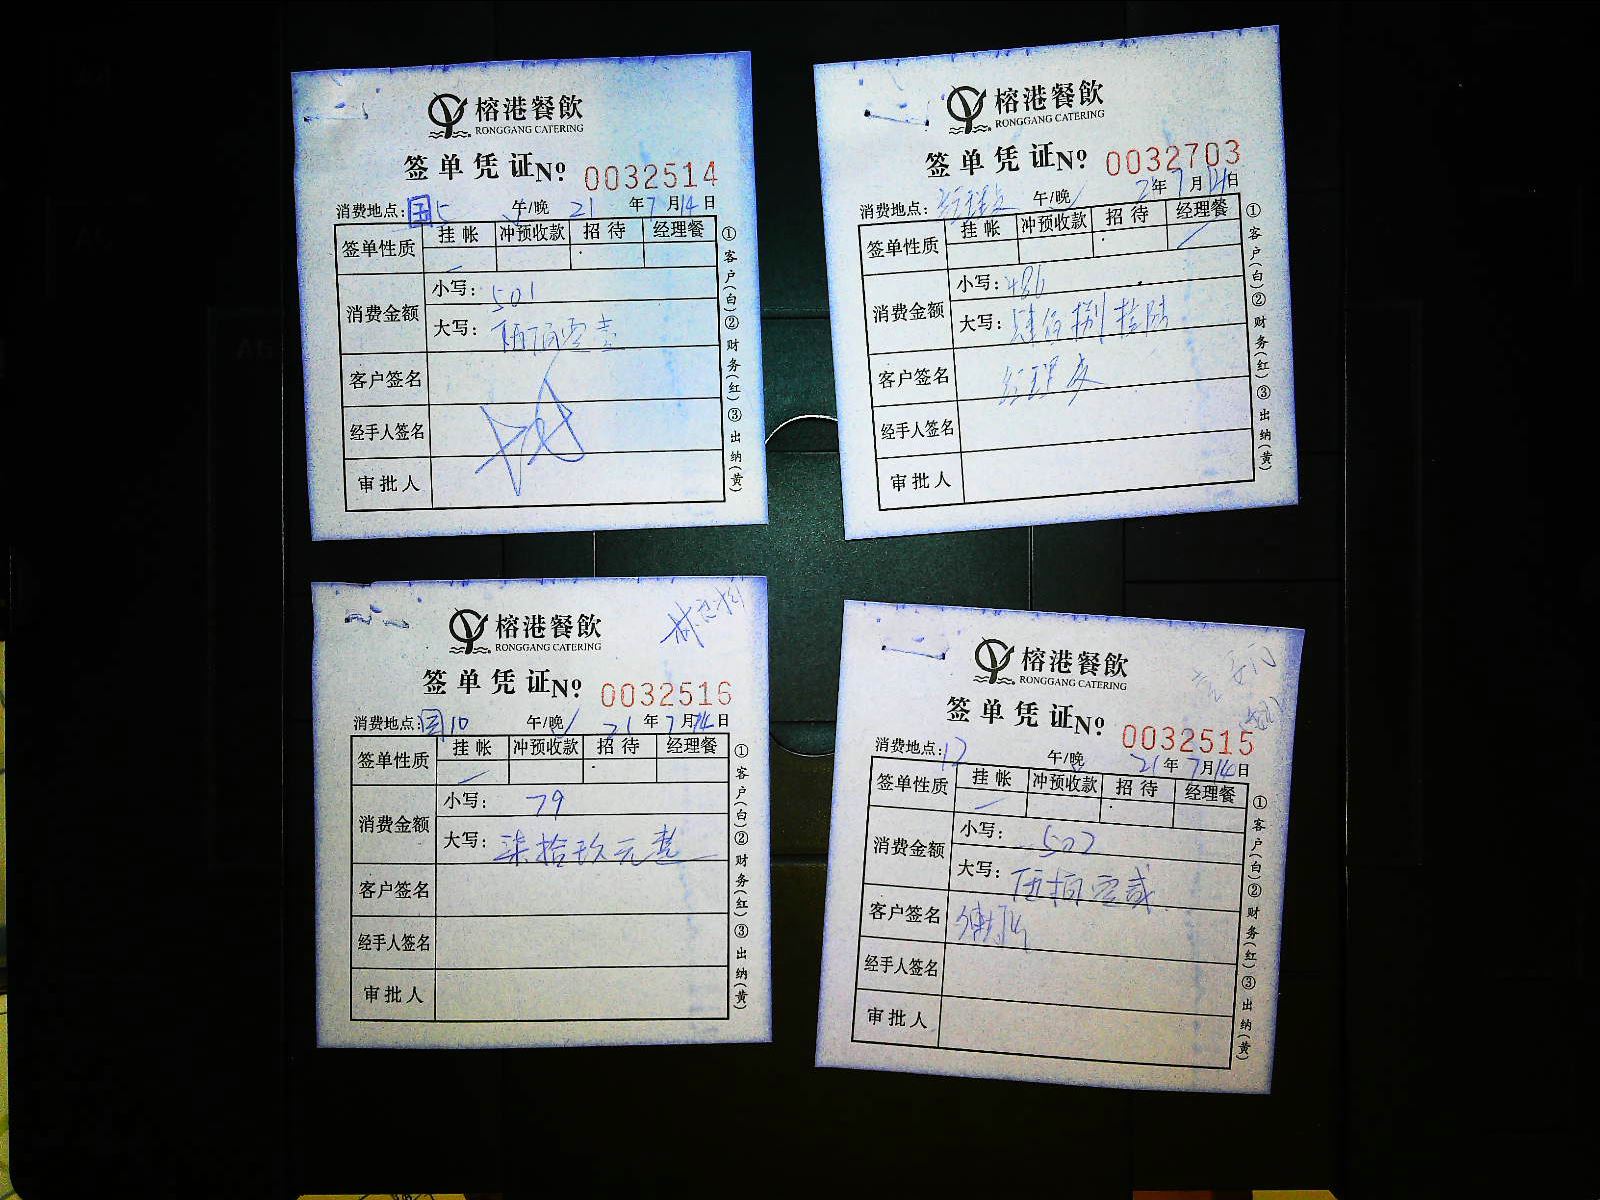 榕港餐飲
RONGGANG CATERING
签单凭证No 0032514
消费地点: 国5 午/晚 21年7月14日
签单性质 挂帐 冲预收款 招待 经理餐
消费金额 小写: 501
大写: 伍佰零壹
客户签名
经手人签名
审批人
①客户(白)②财务(红)③出纳(黄)
榕港餐飲
RONGGANG CATERING
签单凭证No 0032703
消费地点: 午/晚 年7月14日
签单性质 挂帐 冲预收款 招待 经理餐
消费金额 小写: 486
大写: 肆佰捌拾陆
客户签名 经理
经手人签名
审批人
①客户(白)②财务(红)③出纳(黄)
榕港餐飲
RONGGANG CATERING
签单凭证No 0032516
消费地点: 国10 午/晚 21年7月14日
签单性质 挂帐 冲预收款 招待 经理餐
消费金额 小写: 79
大写: 柒拾玖元整
客户签名
经手人签名
审批人
①客户(白)②财务(红)③出纳(黄)
榕港餐飲
RONGGANG CATERING
签单凭证No 0032515
消费地点: 12 午/晚 21年7月14日
签单性质 挂帐 冲预收款 招待 经理餐
消费金额 小写: 502
大写: 伍佰零贰
客户签名
经手人签名
审批人
①客户(白)②财务(红)③出纳(黄)